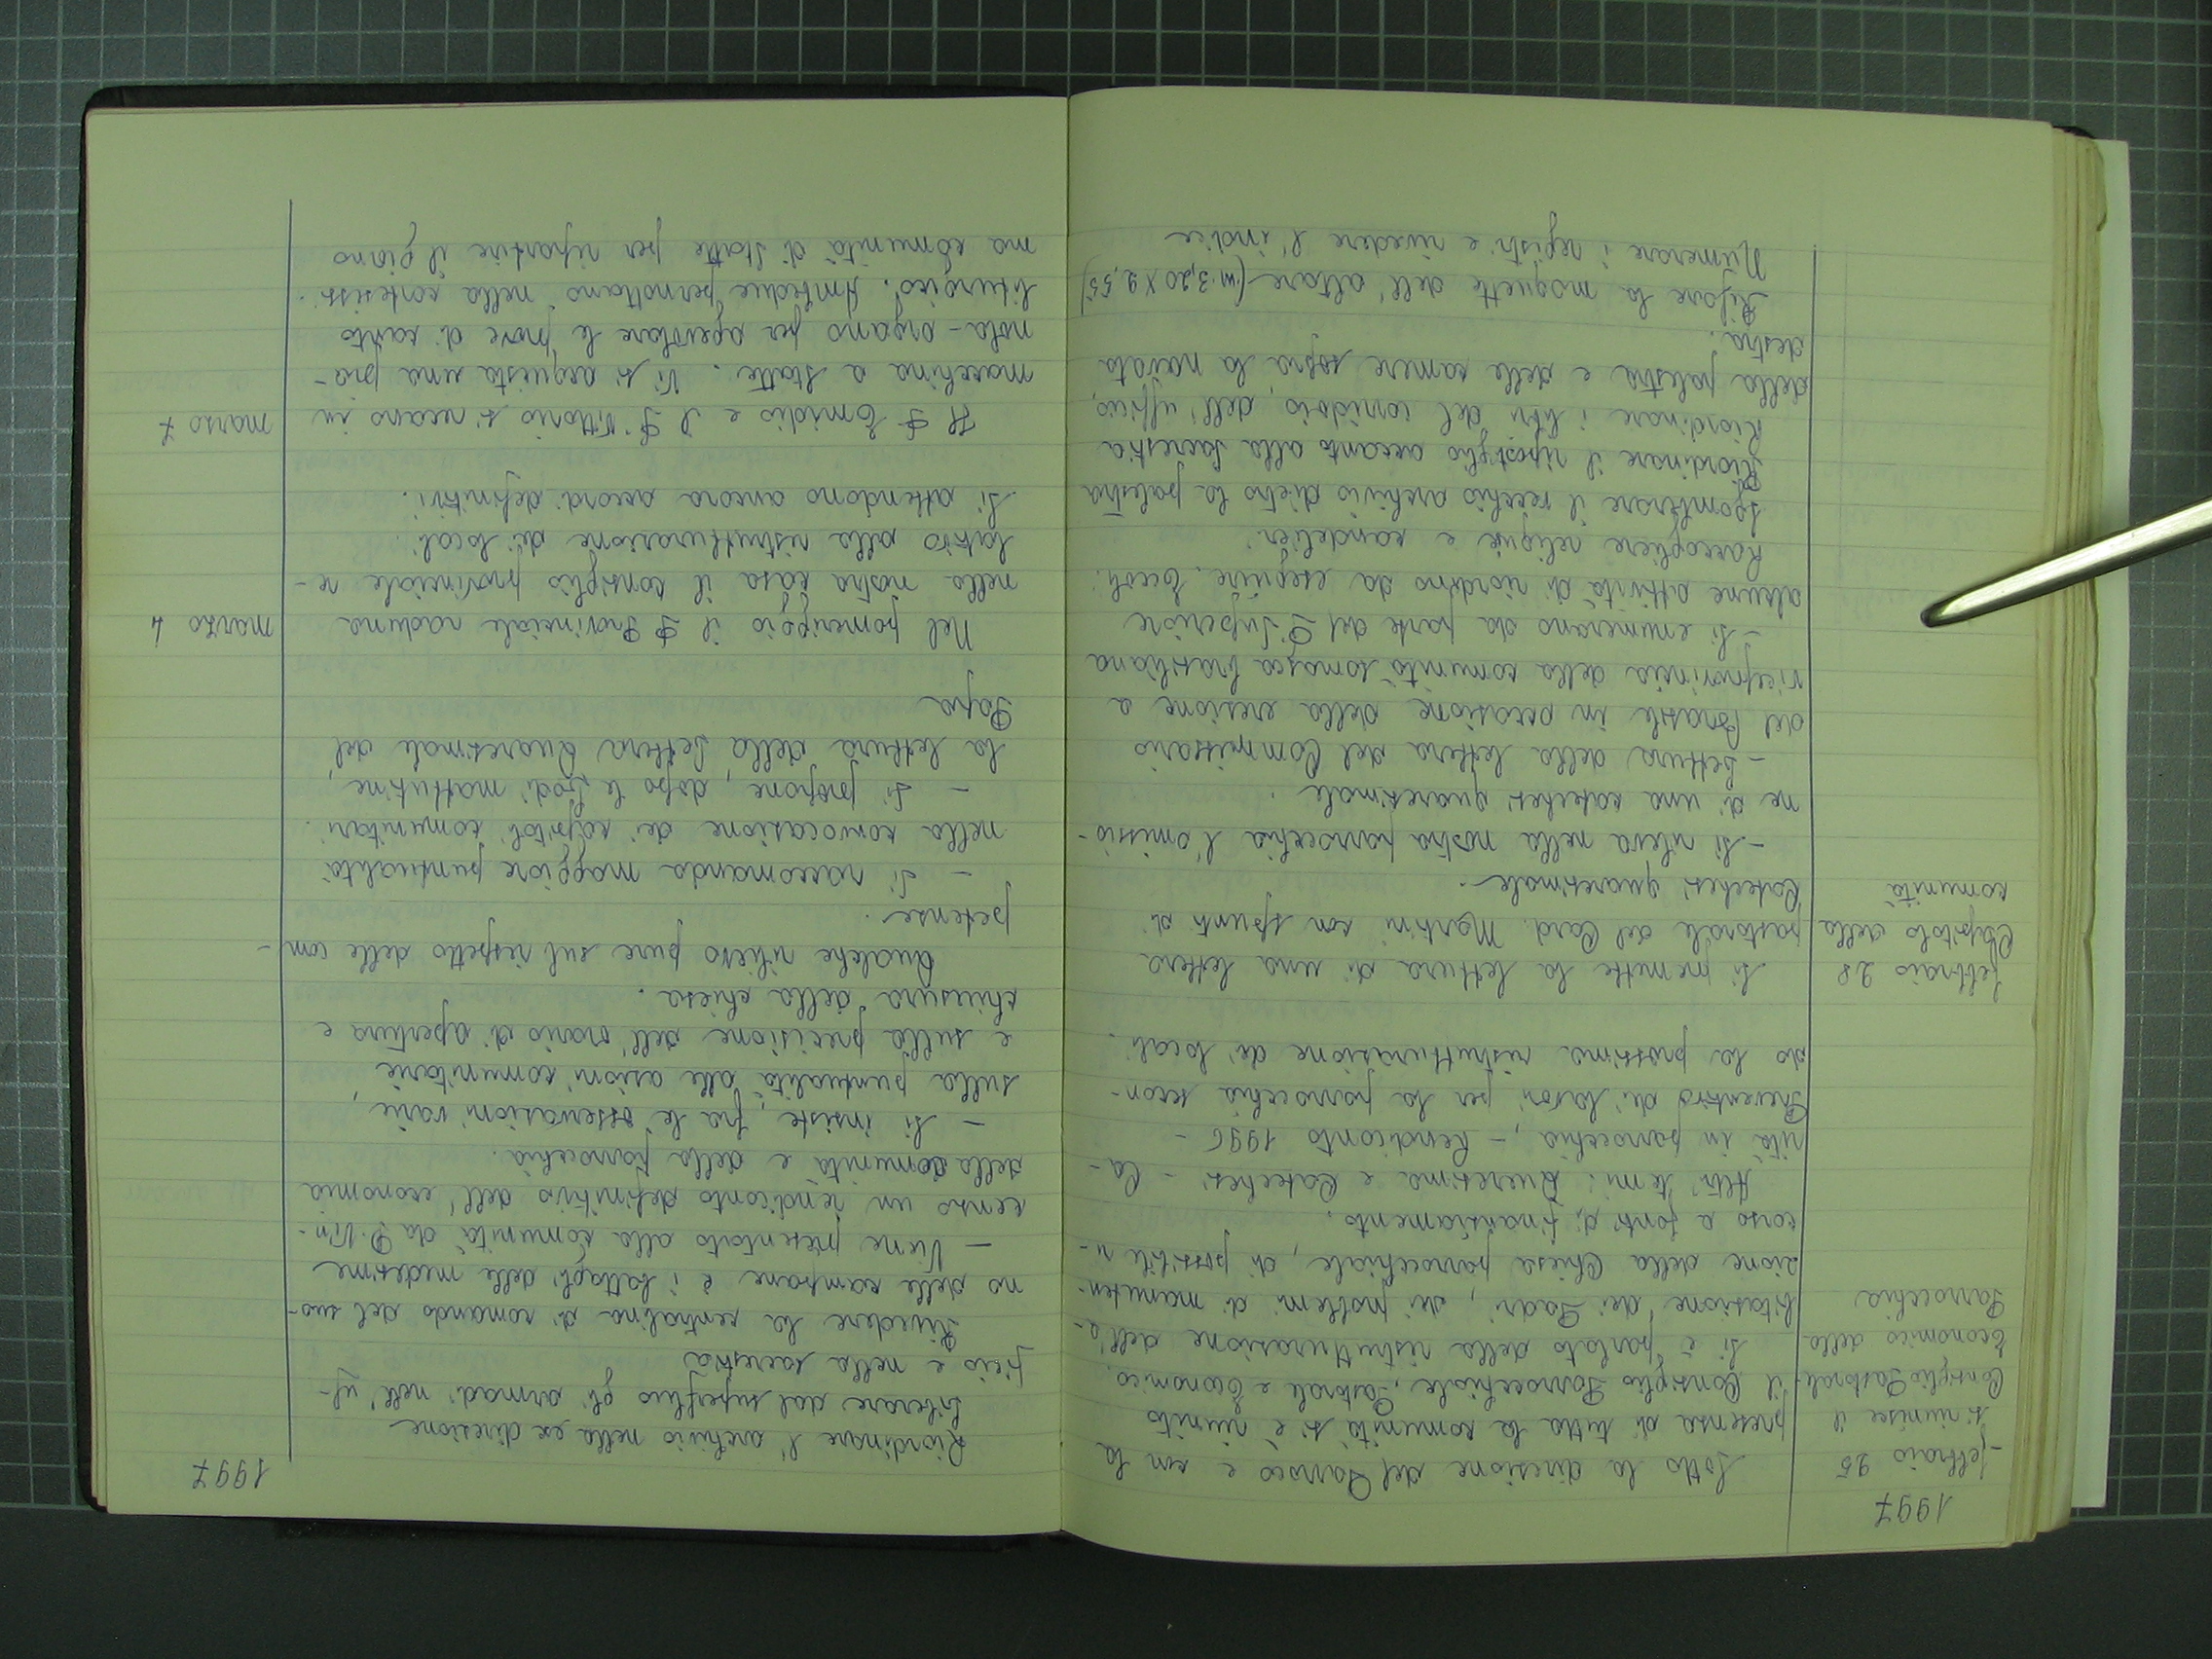 1997
febbraio 25
si riunisce il
Consiglio Pastorale
Economico della
Parrocchia
Sotto la direzione del Parroco e con la
presenza di tutta la comunità si è riunito
il Consiglio Parrocchiale, Pastorale e Economico.
Si è parlato della ristrutturazione dell'a-
bitazione dei Padri, dei problemi di manuten-
zione della Chiesa parrocchiale, di possibile ri-
corso a fonti di finanziamento.
Altri temi: Quaresima e Catechesi - Ca-
rità in parrocchia, - Rendiconto 1996 -
Preventivo dei lavori per la parrocchia secon-
do la prossima ristrutturazione dei locali.
febbraio 28
Capitolo della
comunità
Si premette la lettura di una lettera
pastorale del Card. Martini con spunti di
Catechesi quaresimale.
- Si rileva nella nostra parrocchia l'omissio-
ne di una catechesi quaresimale.
- Lettura della lettera del Commissario
del Brasile in occasione della erezione a
viceprovincia della comunità somasca brasiliana
- Si enumerano da parte del P. Superiore
alcune attività di riordino da eseguire. Eccoli:
Raccogliere reliquie e candelieri.
Sgomberare il vecchio archivio dietro la palestra
Riordinare il ripostiglio accanto alla sacrestia
Riordinare i libri del corridoio, dell'ufficio,
della palestra e delle camere sopra la navata
destra.
Rifare la moquette dell'altare (m. 3,20 x 2,55)
Numerare i registri e rivedere l'indice
1997
Riordinare l'archivio nella ex direzione
Liberare dal superfluo gli armadi nell'uf-
ficio e nella sacrestia
Rivedere la centralina di comando del suo-
no delle campane e i battagli delle medesime
- Viene presentato alla comunità da P. Vin-
cenzo un rendiconto definitivo dell'economia
della comunità e della parrocchia.
- Si insiste, fra le osservazioni varie,
sulla puntualità alle azioni comunitarie
e sulla precisione dell'orario di apertura e
chiusura della chiesa.
Qualche rilievo pure sul rispetto delle com-
petenze.
- Si raccomanda maggiore puntualità
nella convocazione dei capitoli comunitari.
- Si propone, dopo le Lodi mattutine,
la lettura della Lettera Quaresimale del
Papa
marzo 4
Nel pomeriggio il P. Provinciale raduna
nella nostra casa il consiglio provinciale re-
lativo alla ristrutturazione dei locali.
Si attendono ancora accordi definitivi.
marzo 7
Il P. Emidio e il P. Vittorio si recano in
macchina a Statte. Vi si acquista una pia-
nola-organo per agevolare le prove di canto
liturgico. Ambedue pernottano nella cortesissi-
ma comunità di Statte per ripartire il giorno